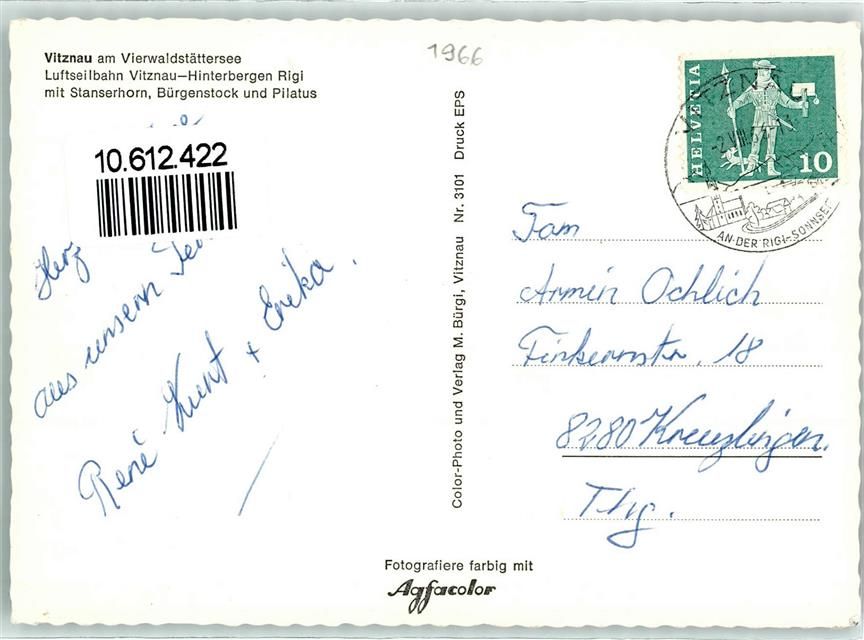 1966
Vitznau am Vierwaldstättersee
Luftseilbahn Vitznau–Hinterbergen Rigi
mit Stanserhorn, Bürgenstock und Pilatus
10.612.422
Herz
aus unsern
René Kurt + Erika.
Color-Photo und Verlag M. Bürgi, Vitznau Nr. 3101 Druck EPS
HELVETIA
10
VITZNAU
AN DER RIGI-SONNSEITE
Fam
Armin Ochlich
18
8280 Kreuzlingen.
Thg.
Fotografiere farbig mit
Agfacolor